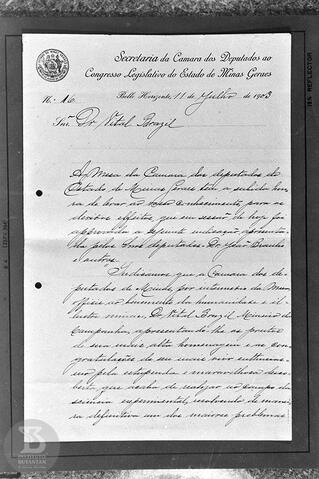 Secretaria da Camara dos Deputados ao
Congresso Legislativo do Estado de Minas Geraes
N.º 16 Bello Horizonte, 11 de Julho de 1903
Snr. Dr. Vital Brazil
A Mesa da Camara dos deputados do
Estado de Minas Geraes tem a subida hon-
ra de levar ao vosso conhecimento para os
devidos effeitos, que em sessão de hoje foi
approvada a seguinte indicação apresenta-
da pelos Snrs deputados, Dr. João Braulio
e outros.
Indicamos que a Camara dos de-
putados de Minas, por intermedio da Mesa
officie ao eminente da humanidade e il-
lustre mineiro, Dr. Vital Brazil Mineiro da
Campanha, apresentando-lhe os protes-
tos de sua mais alta homenagem e as con-
gratulações de seu mais vivo enthusias-
mo pela estupenda e maravilhosa desco-
berta que acaba de realizar no campo da
sciencia experimental, resolvendo de manei-
ra definitiva um dos maiores problemas
INSTITUTO
BUTANTAN